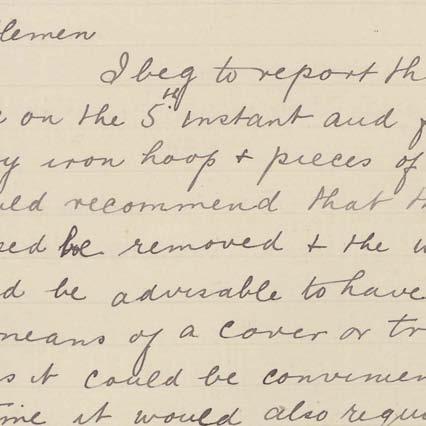 lemen
I beg to report th
on the 5th instant and f
y iron hoop & pieces of
uld recommend that th
sed be removed & the w
d be advisable to have
means of a cover or tr
s it could be convenien
me it would also requ